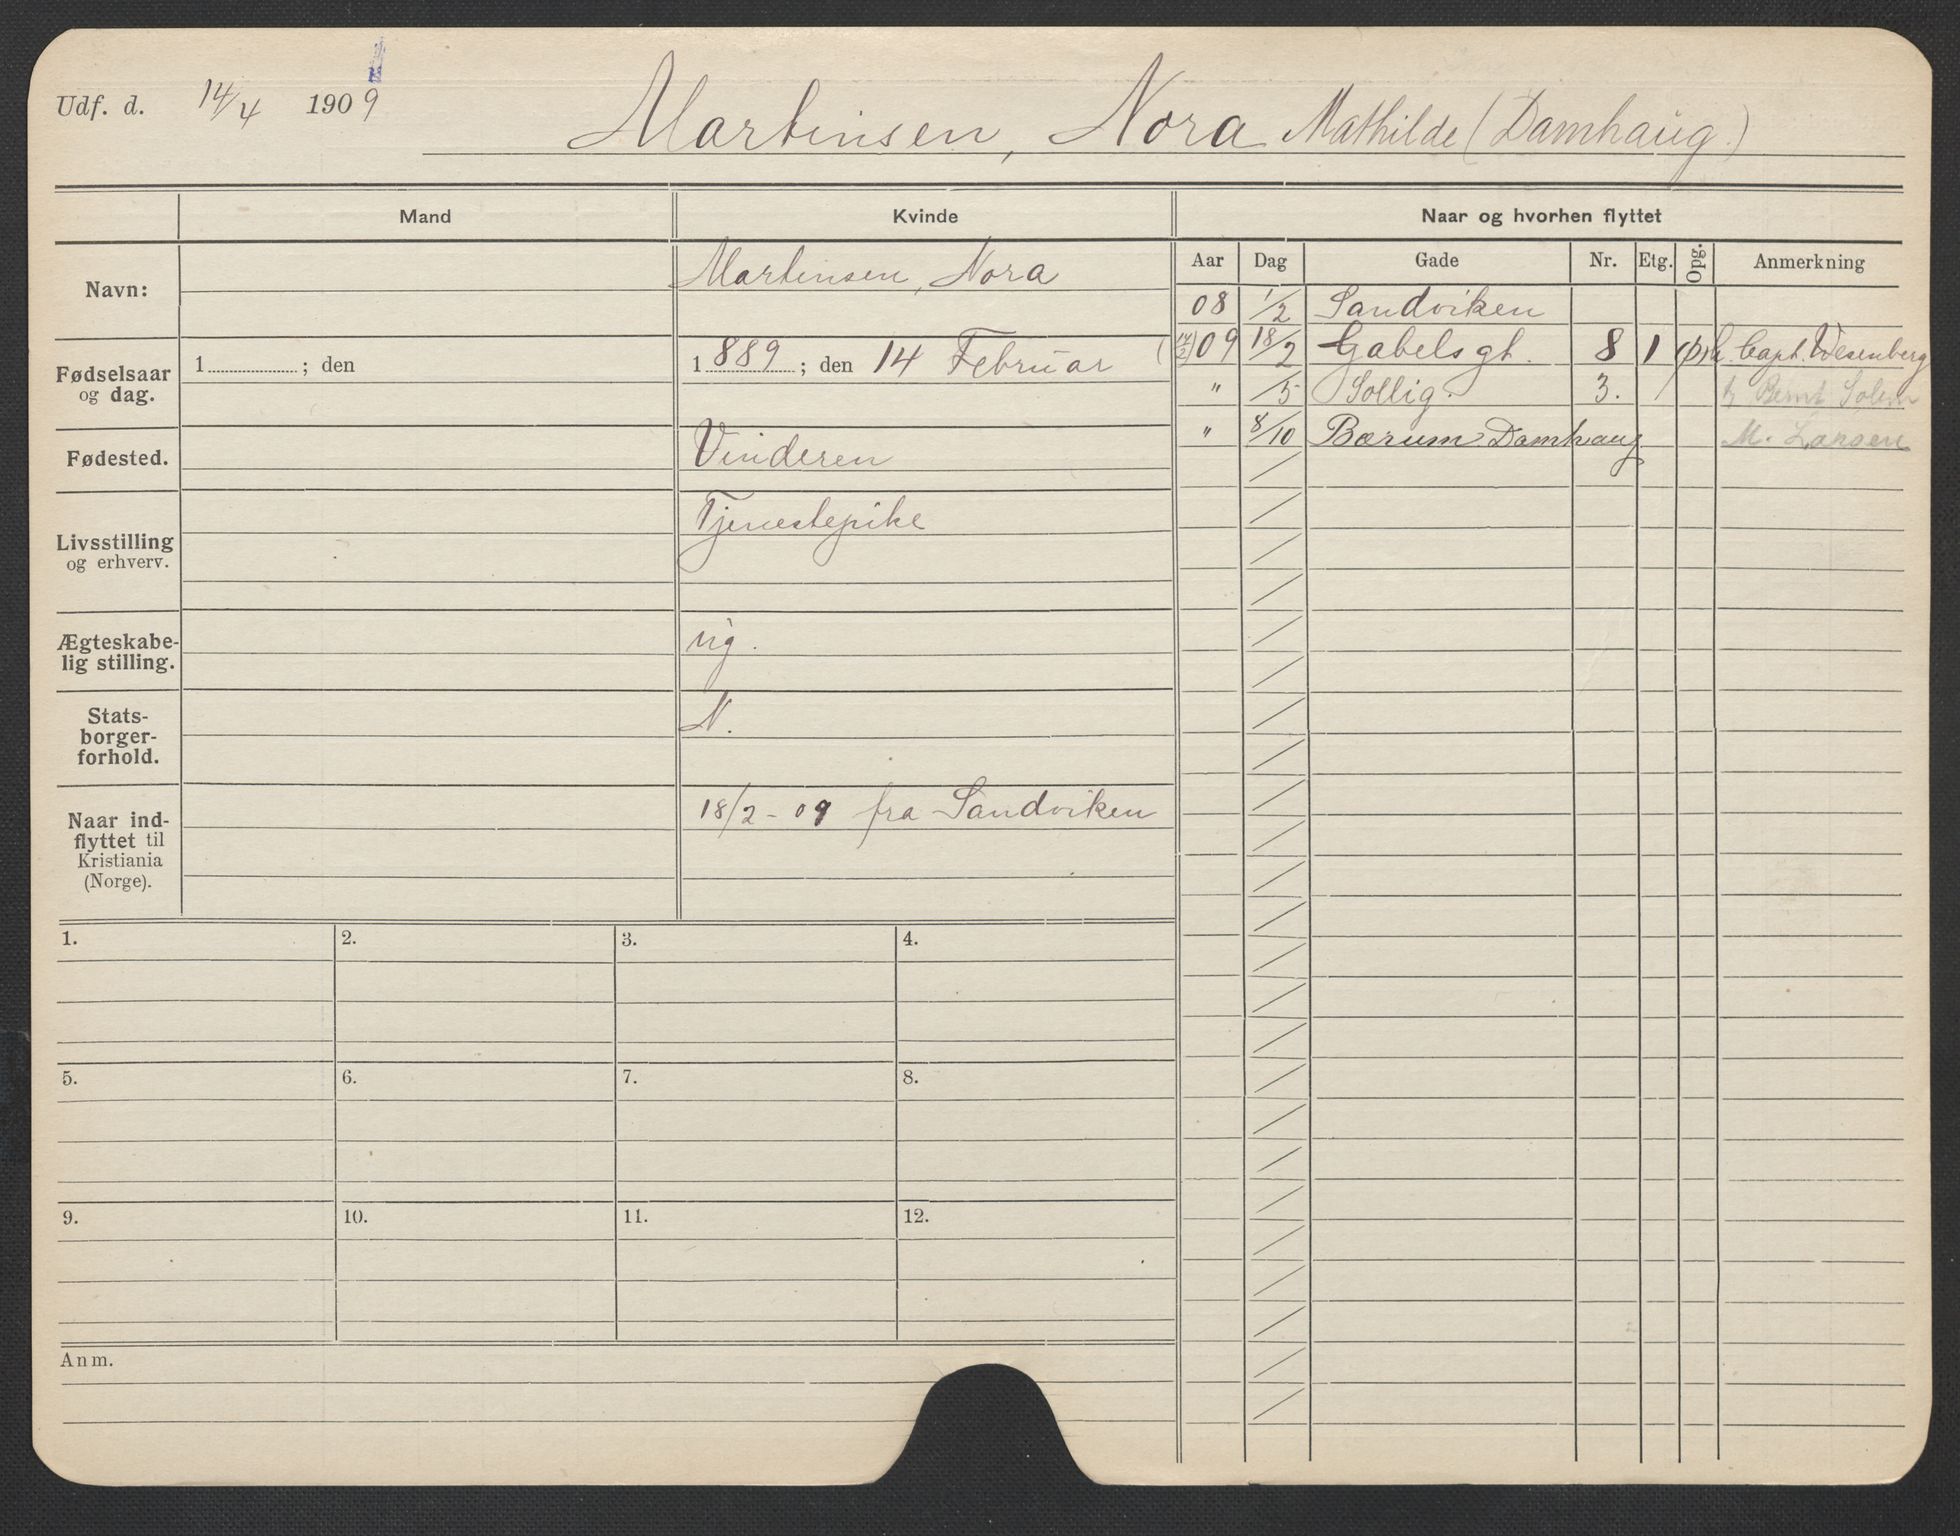 Udf. d. 14/4 1909 Martinsen, Nora Mathilde (Damhaug.)
Mand Kvinde Naar og hvorhen flyttet
Aar Dag Gade Nr. Etg. Opg. Anmerkning
Navn: Martinsen, Nora
08 1/2 Sandviken
09 18/2 Gabelsgt. 8 1 Capt. Wesenberg
" /5 Sollig. 3. Bernt Solem
" 8/10 Bærum Damhaug M. Larsen
Fødselsaar og dag. 1 ; den 1889 ; den 14 Februar
Fødested. Vinderen
Livsstilling og erhverv. Tjenestepike
Ægteskabe-
lig stilling. ug.
Stats-
borger-
forhold. N.
Naar ind-
flyttet til
Kristiania
(Norge). 18/2 - 09 fra Sandviken
1. 2. 3. 4.
5. 6. 7. 8.
9. 10. 11. 12.
Anm.